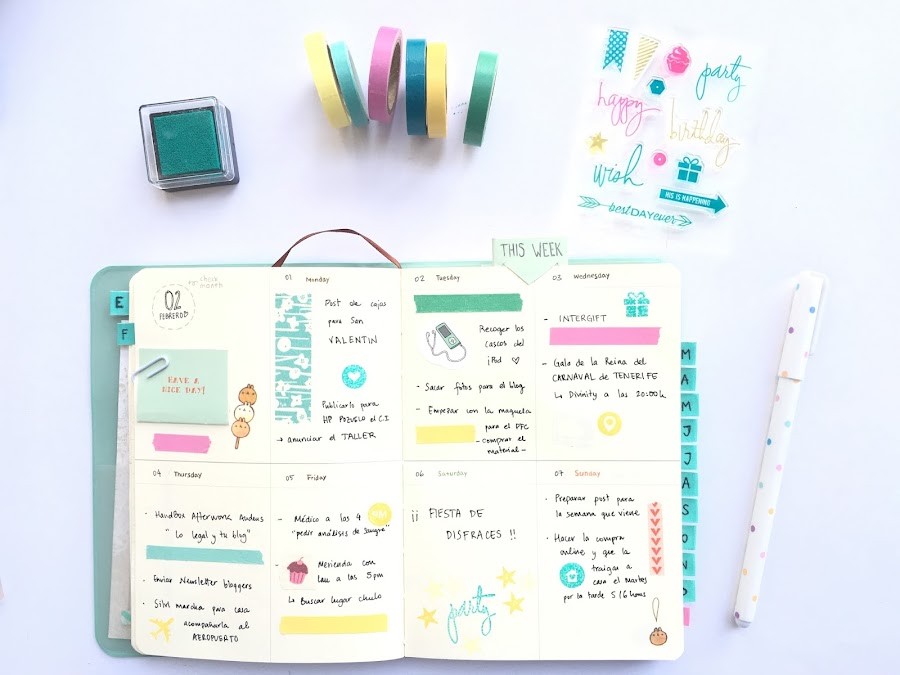 party
happy
birthday
wish
HIS IS HAPPENING
bestDAYever
THIS WEEK
E
F
check
this month
02
FEBRERO
HAVE A
NICE DAY!
01 Monday
Post de cajas
para San
VALENTIN
Publicarlo para
HP POZUELO el C.I.
→ anunciar el TALLER
02 Tuesday
Recoger los
cascos del
iPod ♡
- Sacar fotos para el blog
- Empezar con la maqueta
para el PFC
- comprar el
material -
03 Wednesday
- INTERGIFT
- Gala de la Reina del
CARNAVAL de TENERIFE
↳ Divinity a las 20:00h
04 Thursday
· Handbox Afterwork Andens
"Lo legal y tu blog"
· Enviar Newsletter bloggers
· Silvi marcha para casa
acompañarla al
AEROPUERTO
05 Friday
- Médico a las 4
"pedir análisis de sangre"
- Merienda con
Lau a las 5pm
↳ Buscar lugar chulo
06 Saturday
¡¡ FIESTA DE
DISFRACES !!
party
07 Sunday
· Preparar post para
la semana que viene
· Hacer la compra
online y que la
traigan a
casa el Martes
por la tarde 5/6 horas
M
A
M
J
J
A
S
O
N
D